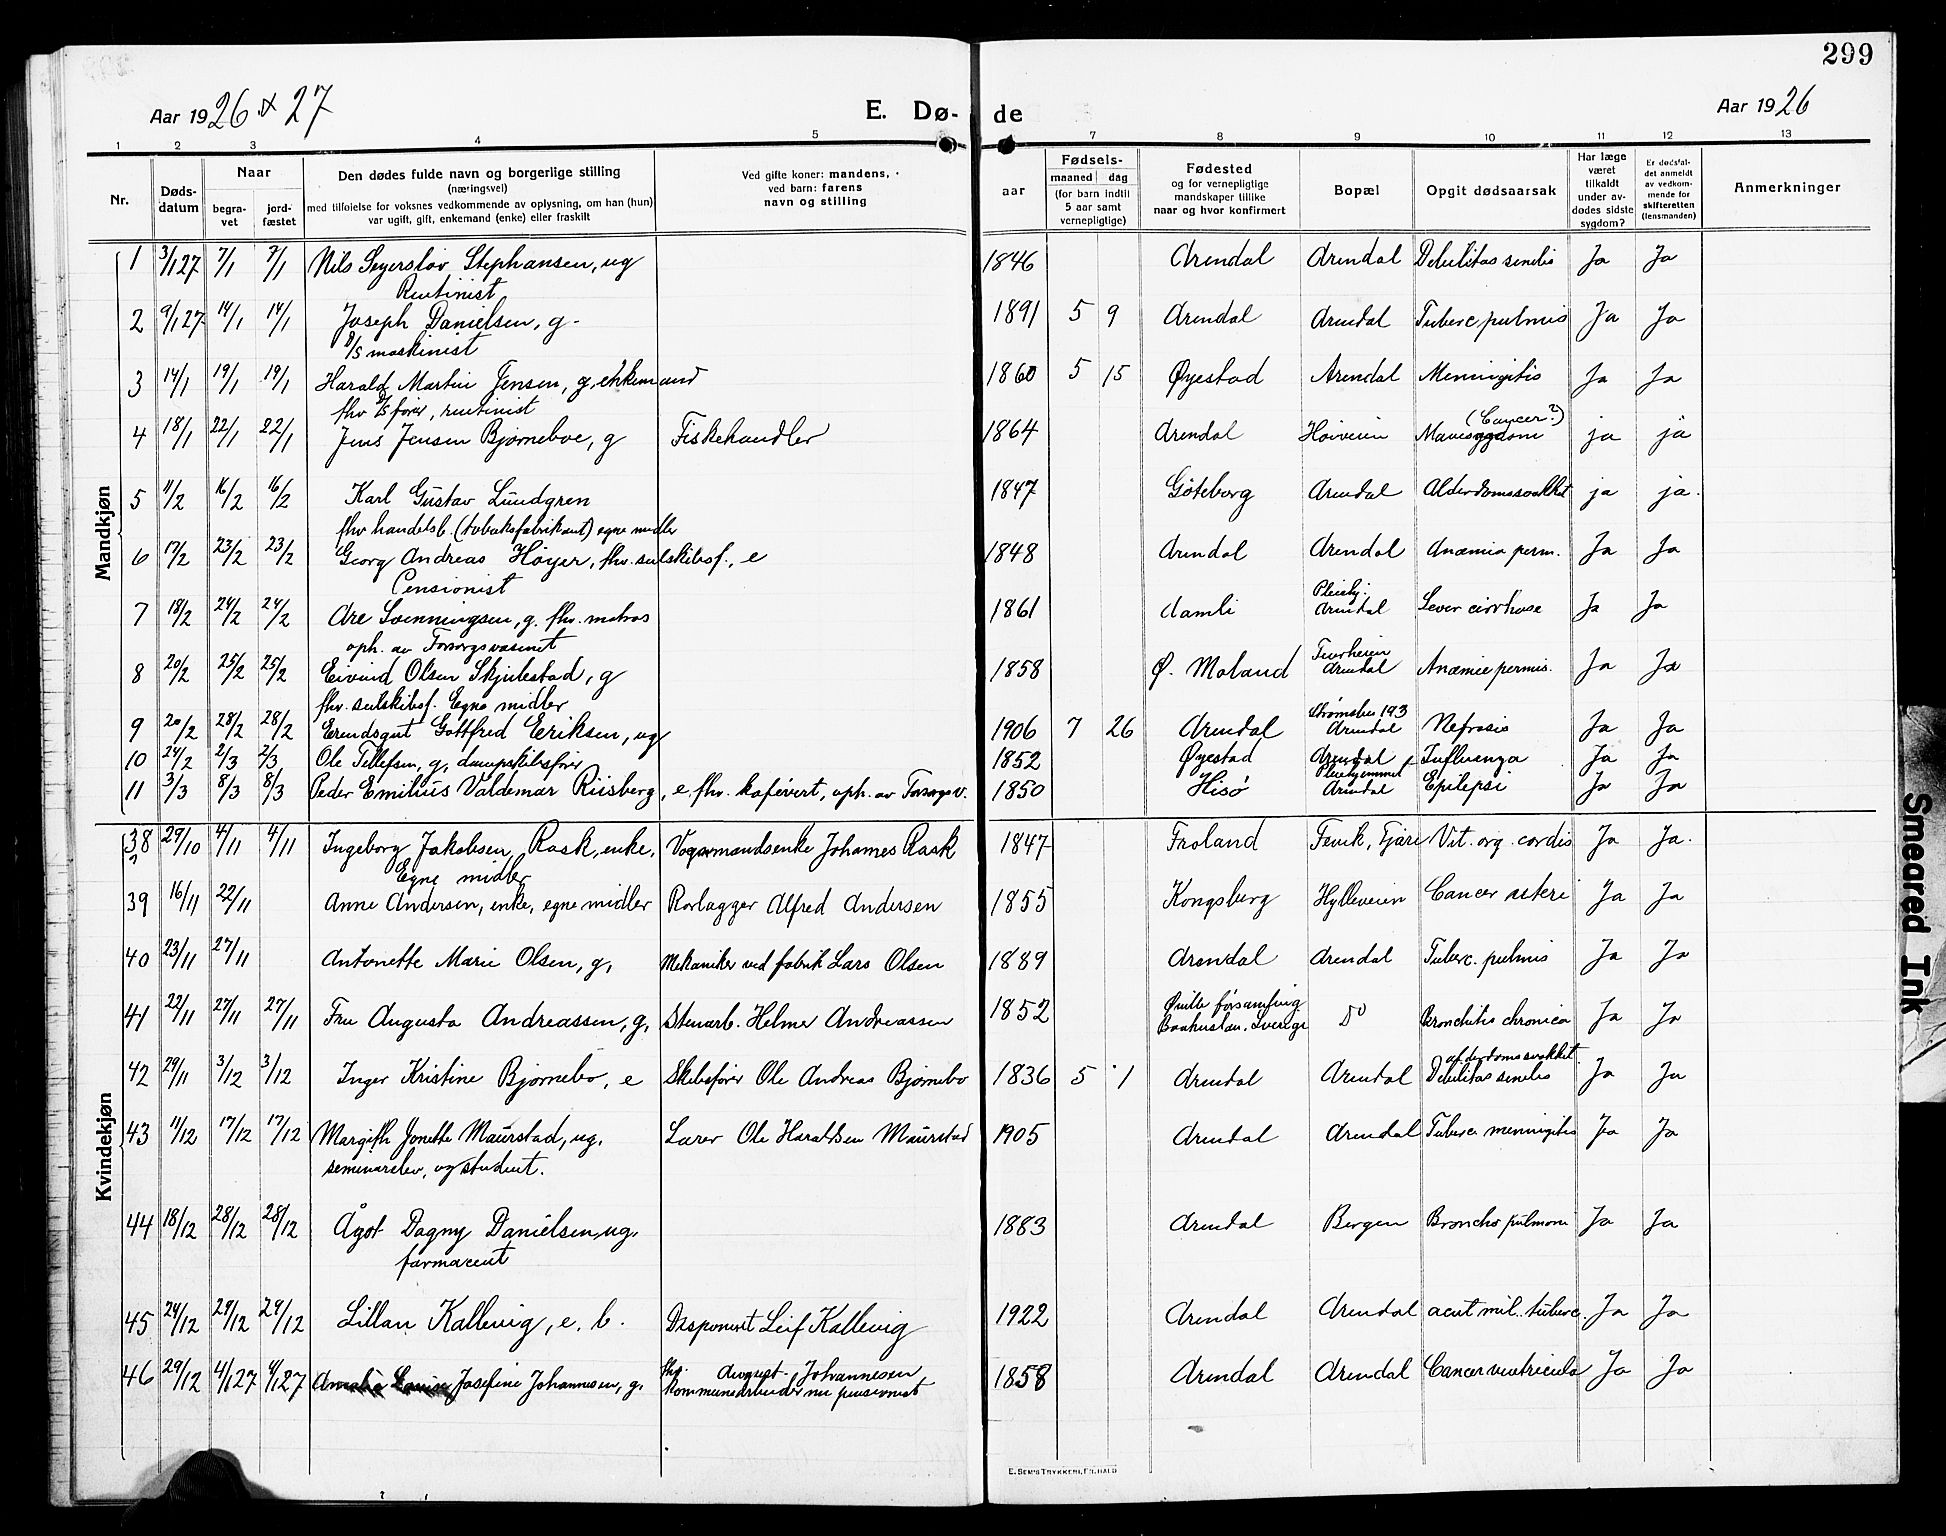 299
Aar 1926 & 27
E. Dø-
de
Aar 1926
1 2 3 4 5 7 8 9 10 11 12 13
Nr.
Døds-
datum
Naar
begra-
vet
jord-
fæstet
Den dødes fulde navn og borgerlige stilling
(næringsvei)
med tilføielse for voksnes vedkommende av oplysning, om han (hun)
var ugift, gift, enkemand (enke) eller fraskilt
Ved gifte koner: mandens,
ved barn: farens
navn og stilling
aar
Fødsels-
maaned dag
(for barn indtil
5 aar samt
vernepligtige)
Fødested
og for vernepligtige
mandskaper tillike
naar og hvor konfirmert
Bopæl
Opgit dødsaarsak
Har læge
været
tilkaldt
under av-
dødes sidste
sygdom?
Er dødsfal-
det anmeldt
av vedkom-
mende for
skifteretten
(lensmanden)
Anmerkninger
Mandkjøn
1 3/1 27 7/1 7/1 Nils Seyerslov Stephansen, ug 1846 Arendal Arendal Debilitas senilis Ja Ja
Rentinist
2 9/1 27 14/1 14/1 Joseph Danielsen, g. 1891 5 9 Arendal Arendal Tuberc pulmis Ja Ja
d/s maskinist
3 14/1 19/1 19/1 Harald Martin Jensen, g, enkemand 1860 5 15 Øyestad Arendal Meningitis Ja Ja
fhv d/s fører, rentinist
(Cancer?)
4 18/1 22/1 22/1 Jens Jensen Bjørneboe, g Fiskehandler 1864 Arendal Høiveien Mavesygdom ja ja
5 11/2 16/2 16/2 Karl Gustav Lundgren 1847 Göteborg Arendal Alderdomssvakhet ja ja.
fhv handelsb. (tobaksfabrikant) egne midler
6 17/2 23/2 23/2 Georg Andreas Höyer, fhv. seilskibsf., e 1848 Arendal Arendal Anæmia perm. Ja Ja
Pensionist
Pleiehj.
7 18/2 24/2 24/2 Are Svenningsen, g. fhv. matros 1861 Aamli Arendal Lever cirrhose Ja Ja
oph. av Forsorgsvæsenet
8 20/2 25/2 25/2 Eivind Olsen Skjulestad, g 1858 Ø. Moland Arendal Anæmie pernis. Ja Ja
fhv. seilskibsf. Egne midler
Strømsbu 193
9 20/2 28/2 28/2 Erendsgut Gottfred Eriksen, ug 1906 7 26 Arendal Arendal Nefrosis Ja Ja
10 24/2 2/3 2/3 Ole Tellefsen, g, dampskibsfører 1852 Øyestad Arendal Influenza Ja Ja
Pleiehjemmet
11 3/3 8/3 8/3 Peder Emilius Valdemar Riisberg, e. fhv. kafévert, oph. av Forsorgsv. 1850 Hisö Arendal Epilepsi Ja Ja
Kvindekjøn
38 29/10 4/11 4/11 Ingeborg Jakobsen Rask, enke, Vognmandsenke Johannes Rask 1847 Froland Fevik, Fjære Vit. org. cordis Ja Ja.
Egne midler
39 16/11 22/11 Anne Andersen, enke, egne midler Rorlægger Alfred Andersen 1855 Kongsberg Hylleveien Cancer uteri Ja Ja
40 23/11 27/11 Antonette Marie Olsen, g, Mekaniker ved fabrik Lars Olsen 1889 Arendal Arendal Tuberc. pulmis Ja Ja
41 22/11 27/11 27/11 Fru Augusta Andreassen, g, Stenarb. Helmer Andreassen 1852 Qville församling Do Bronchitis chronica Ja Ja
Bohuslän. Sverige
alderdomssvakhet
42 29/11 3/12 3/12 Inger Kristine Bjørnebo, e Skibsfører Ole Andreas Bjørnebo 1836 5 1 Arendal Arendal Debilitas senilis Ja Ja
43 11/12 17/12 17/12 Margith Jonette Maurstad, ug, Lærer Ole Haraldsen Maurstad 1905 Arendal Arendal Tuberc. meningitis Ja Ja
seminarelev, og student.
44 18/12 28/12 28/12 Ågot Dagny Danielsen, ug, 1883 Arendal Bergen Broncho pulmoni Ja Ja
farmaceut
45 24/12 29/12 29/12 Lillan Kallevig, e. b. Disponent Leif Kallevig 1922 Arendal Arendal acut mil. tuberc. Ja Ja
46 29/12 4/1 27 4/1 27 Amalia Lovise Josefine Johannesen, g, fhv. August Johannesen 1858 Arendal Arendal Cancer ventriculo Ja Ja
Kommunearbeider nu pensionist
E. SEM'S TRYKKERI, FR.HALD
Smeared Ink